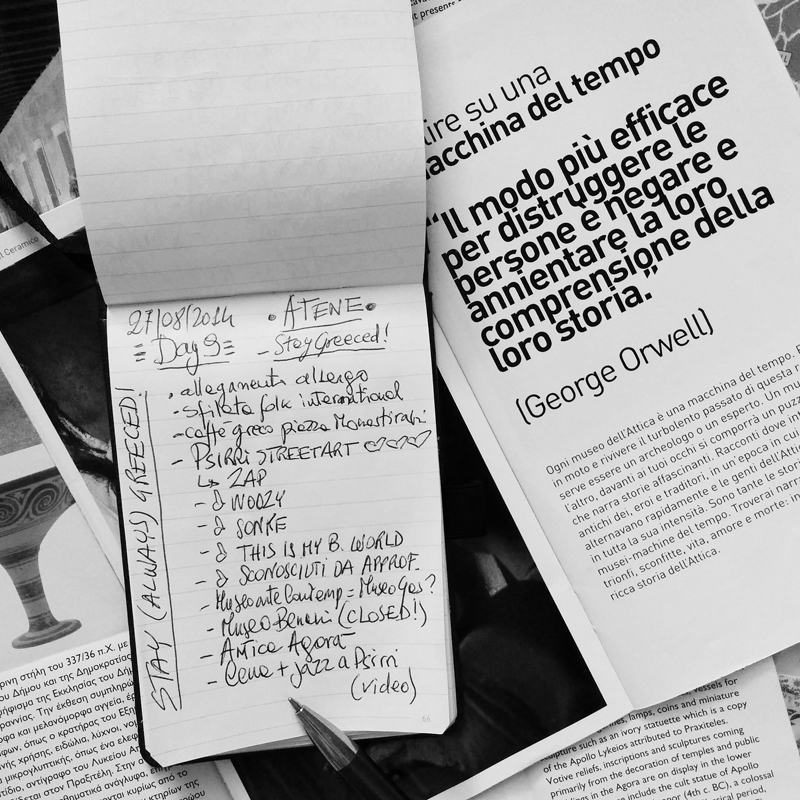 27/08/2014 • ATENE •
Day 9 - Stay Greeced!
STAY (ALWAYS) GREECED!
• allagamenti albergo
- sfilata folk international
- caffè greco piazza Monastiraki
- PSIRRI STREETART ♡♡♡
↳ ZAP
- WOOZY
- SONKE
- THIS IS MY B. WORLD
- SCONOSCIUTI DA APPROF.
- Museo arte Contemp = Museo Gas?
- Museo Benaki (CLOSED!)
- Antica Agorà
- Cena + jazz a Psirri
(video)
66
it presents
lire su una
macchina del tempo
“Il modo più efficace
per distruggere le
persone è negare e
annientare la loro
comprensione della
loro storia.”
(George Orwell)
Ogni museo dell’Attica è una macchina del tempo.
in moto e rivivere il turbolento passato di questa
serve essere un archeologo o un esperto. Un
l’altro, davanti ai tuoi occhi si comporrà un
che narra storie affascinanti. Racconti dove
antichi dei, eroi e traditori, in un’epoca in cui
alternavano rapidamente e le genti
in tutta la sua intensità. Sono tante le
musei-machine del tempo. Troverai
trionfi, sconfitte, vita, amore e morte:
ricca storia dell’Attica.
Ceramico
στήλη του 337/36 π.Χ. με
Δήμου και της Δημοκρατίας
της Εκκλησίας του
Την έκθεση
και μελανόμορφα αγγεία,
όπως ο κρατήρας του
χρήσης, ειδώλια, λύχνοι,
μικρογλυπτικής, όπως ένα
αντίγραφο του Λυκείου
στον Πραξιτέλη. Στην
αναθηματικά ανάγλυφα,
κτηρίων της
από το
vessels for
lamps, coins and miniature
sculpture such as an ivory statuette which is a copy
of the Apollo Lykeios attributed to Praxiteles.
Votive reliefs, inscriptions and sculptures coming
primarily from the decoration of temples and public
buildings in the Agora are on display in the lower
include the cult statue of Apollo
(4th c. BC), a colossal
period,